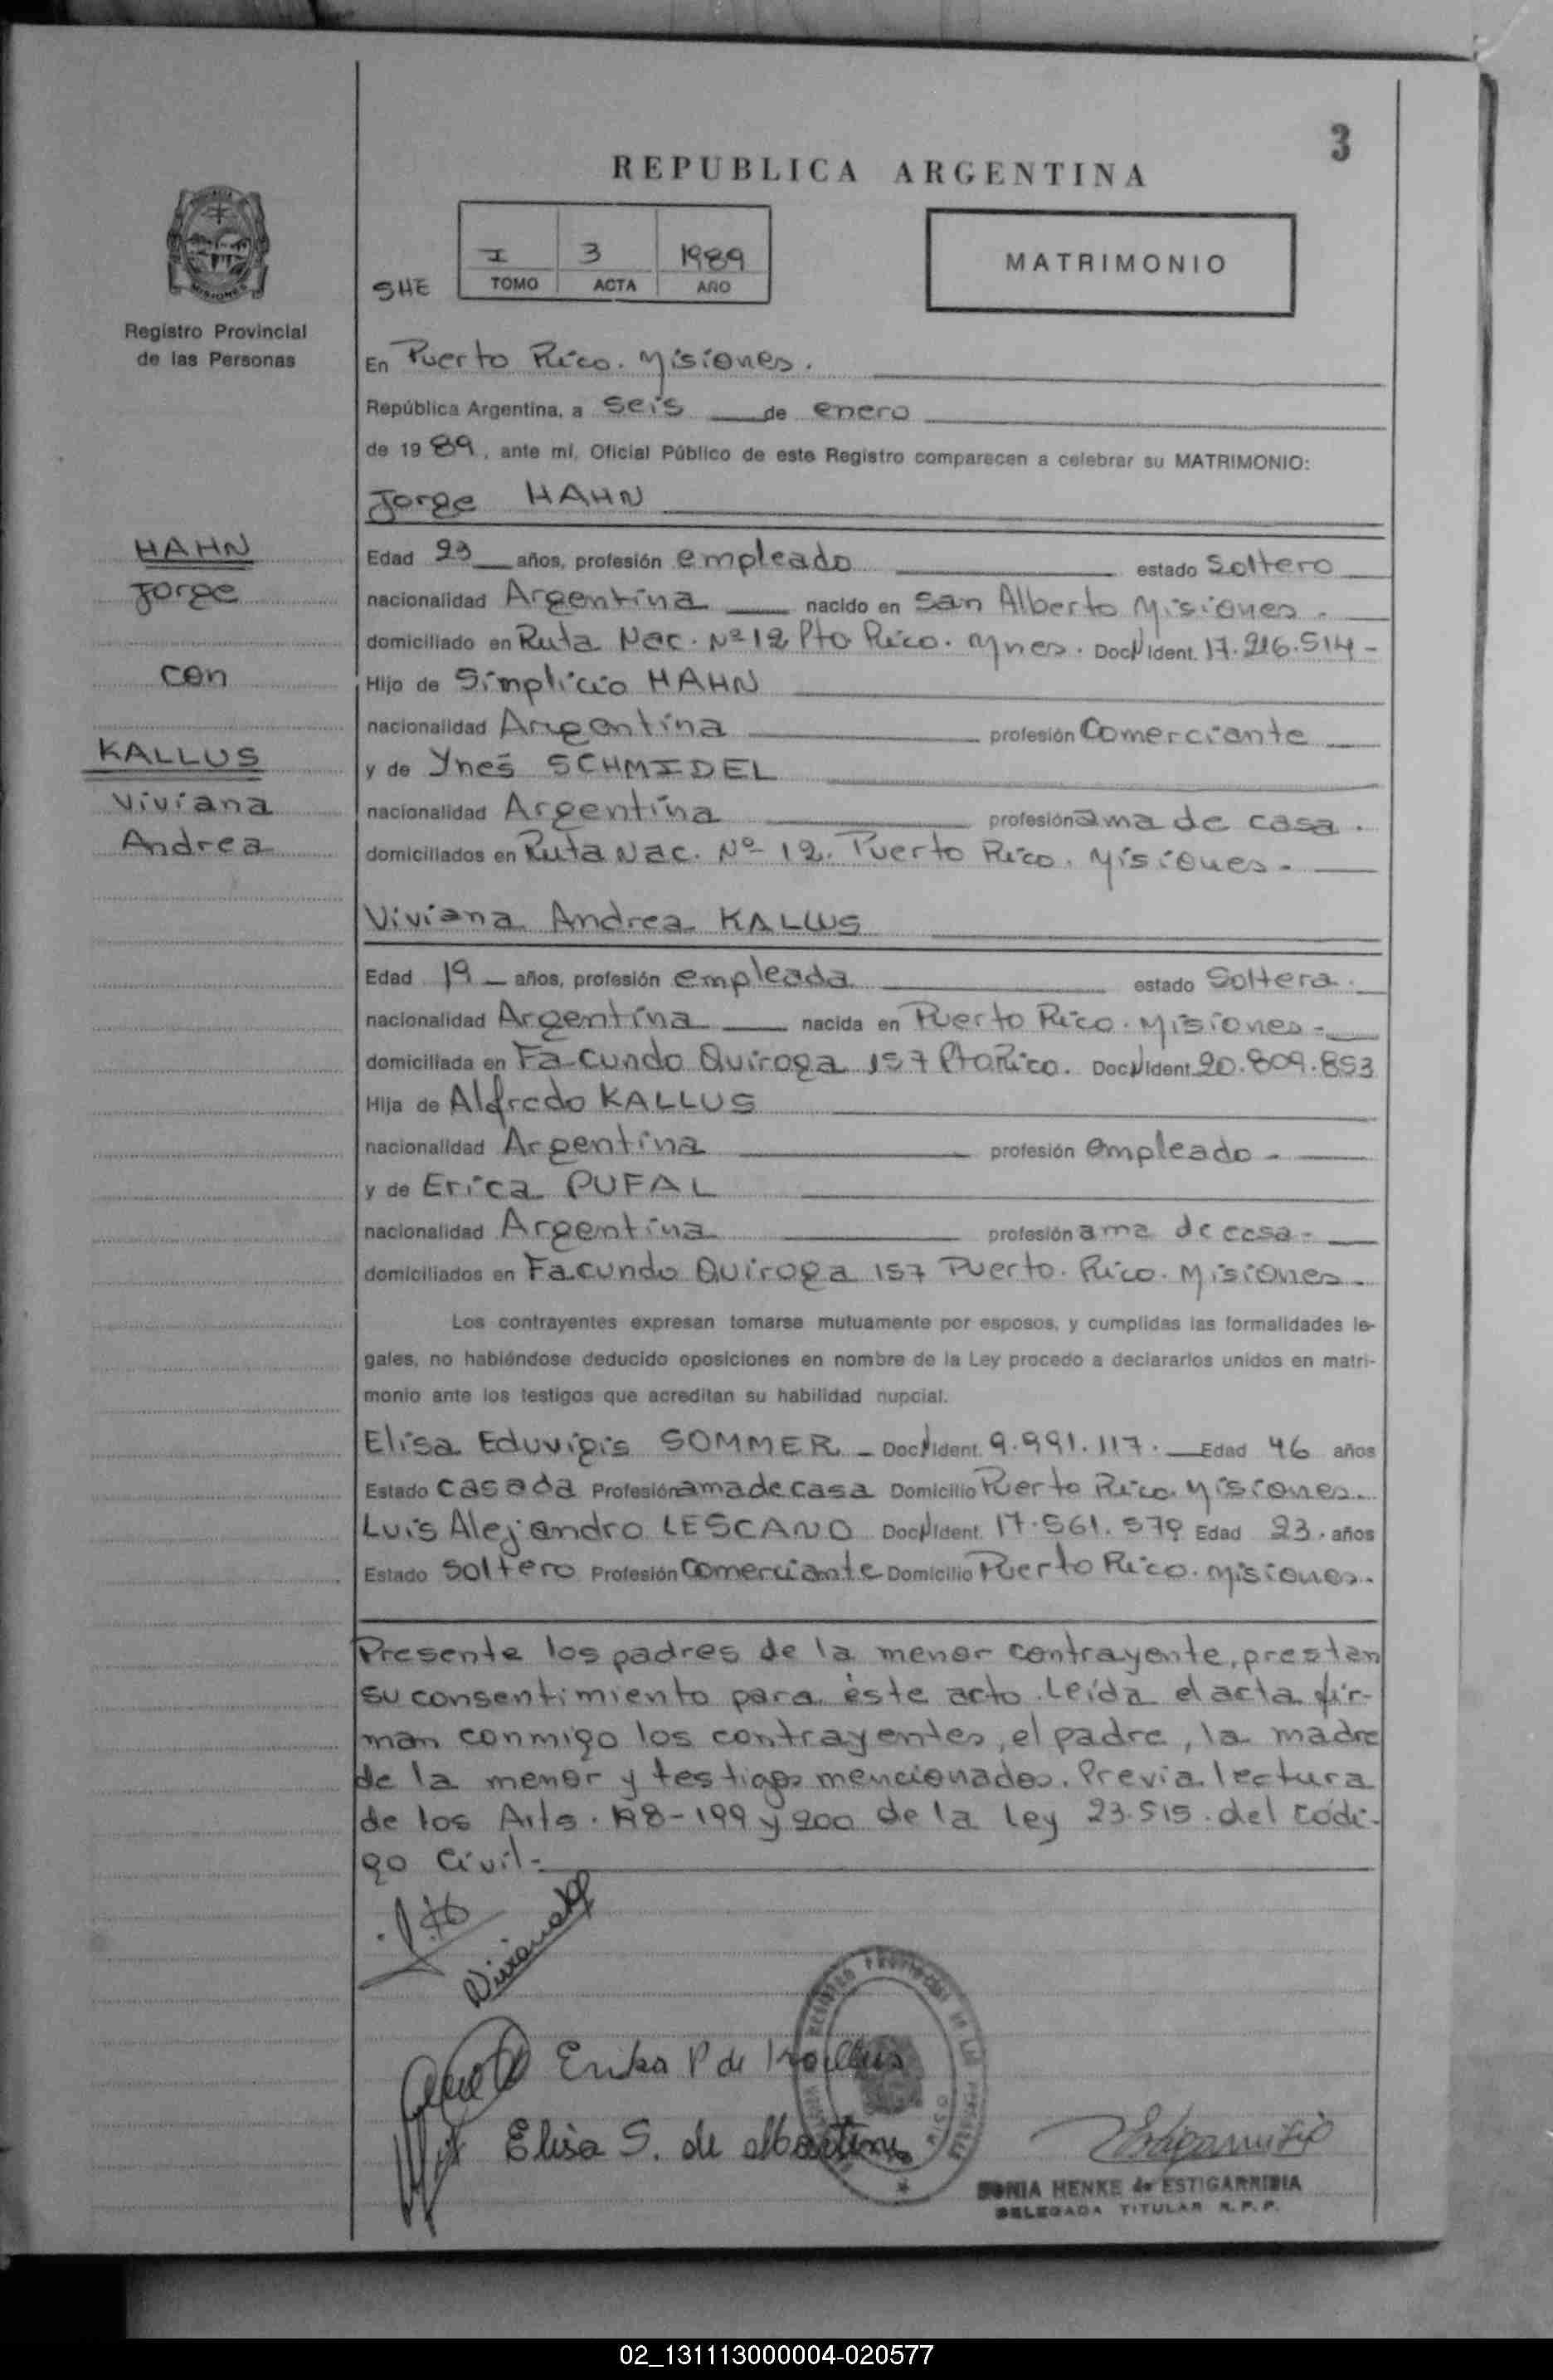 3
REPUBLICA ARGENTINA
I 3 1989
TOMO ACTA AÑO
SHE
MATRIMONIO
MISIONES
Registro Provincial
de las Personas
En Puerto Rico. Misiones.
República Argentina, a seis de enero
de 1989, ante mí, Oficial Público de este Registro comparecen a celebrar su MATRIMONIO:
Jorge HAHN
HAHN
Jorge
con
KALLUS
Viviana
Andrea
Edad 23 años, profesión empleado estado Soltero
nacionalidad Argentina nacido en San Alberto Misiones.
domiciliado en Ruta Nac. Nº 12 Pto Rico. Mnes. Doc N Ident. 17.216.514-
Hijo de Simplicio HAHN
nacionalidad Argentina profesión Comerciante
y de Ynés SCHMIDEL
nacionalidad Argentina profesión ama de casa.
domiciliados en Ruta Nac. Nº 12. Puerto Rico. Misiones.
Viviana Andrea KALLUS
Edad 19 años, profesión empleada estado Soltera.
nacionalidad Argentina nacida en Puerto Rico. Misiones-
domiciliada en Facundo Quiroga 157 Pto Rico. Doc N Ident. 20.809.853
Hija de Alfredo KALLUS
nacionalidad Argentina profesión empleado-
y de Erica PUFAL
nacionalidad Argentina profesión ama de casa-
domiciliados en Facundo Quiroga 157 Puerto. Rico. Misiones.
Los contrayentes expresan tomarse mutuamente por esposos, y cumplidas las formalidades le-
gales, no habiéndose deducido oposiciones en nombre de la Ley procedo a declararlos unidos en matri-
monio ante los testigos que acreditan su habilidad nupcial.
Elisa Eduvigis SOMMER - Doc N Ident. 9.991.117. Edad 46 años
Estado casada Profesión ama de casa Domicilio Puerto Rico. Misiones.
Luis Alejandro LESCANO Doc N Ident. 17.561.579 Edad 23. años
Estado soltero Profesión Comerciante Domicilio Puerto Rico. Misiones.
Presente los padres de la menor contrayente, prestan
su consentimiento para éste acto. Leída el acta fir-
man conmigo los contrayentes, el padre, la madre
de la menor y testigos mencionados. Previa lectura
de los Arts. 198-199 y 200 de la Ley 23.515. del Códi-
go Civil-
Erika P de Kallus
Elisa S. de
SONIA HENKE de ESTIGARRIBIA
DELEGADA TITULAR R.P.P.
02_131113000004-020577